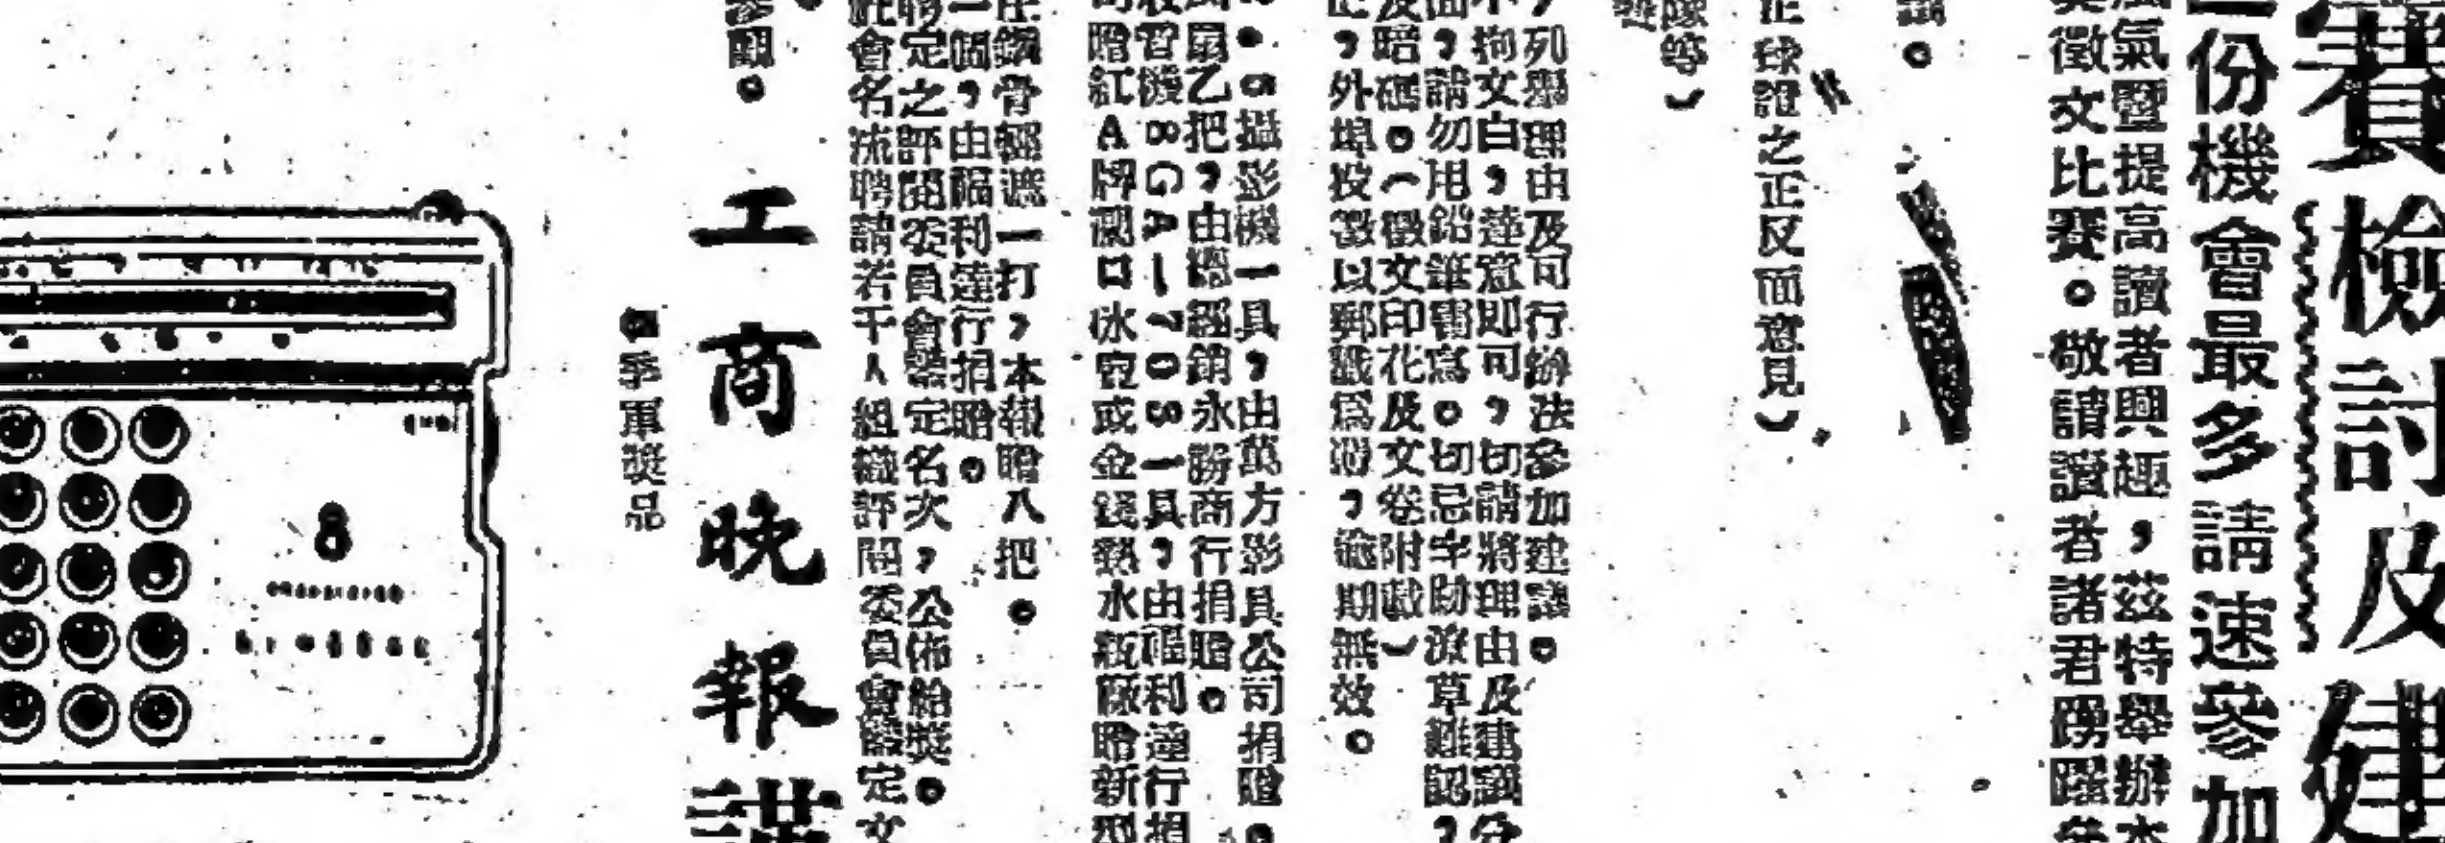 賽檢討及建
份機會最多請速參加
風氣暨提高讀者興趣，茲特舉辦本
徵文比賽。敬請讀者諸君踴躍參
球證之正反面意見）
隊等）
，列舉理由及可行辦法參加建議。
不拘文白，達意即可，切請將理由及建議分
面，請勿用鉛筆書寫。切忌字跡潦草難認，
及暗碼。（徵文印花及文卷附載）
，外埠投徵以郵戳為憑，逾期無效。
攝影機一具，由萬方影具公司捐贈。
風扇乙把，由總經銷永勝商行捐贈。
收音機BGA—708一具，由福利達行捐
贈紅A牌闊口冰壺或金錢熱水瓶廠贈新型
鋼骨縮遮一打，本報贈八把。
一個，由福利達行捐贈。
聘定之評閱委員會議定名次，公佈給獎。
社會名流聘請若干人組織評閱委員會議定文
參閱。
工商晚報謹
季軍獎品
8
brother